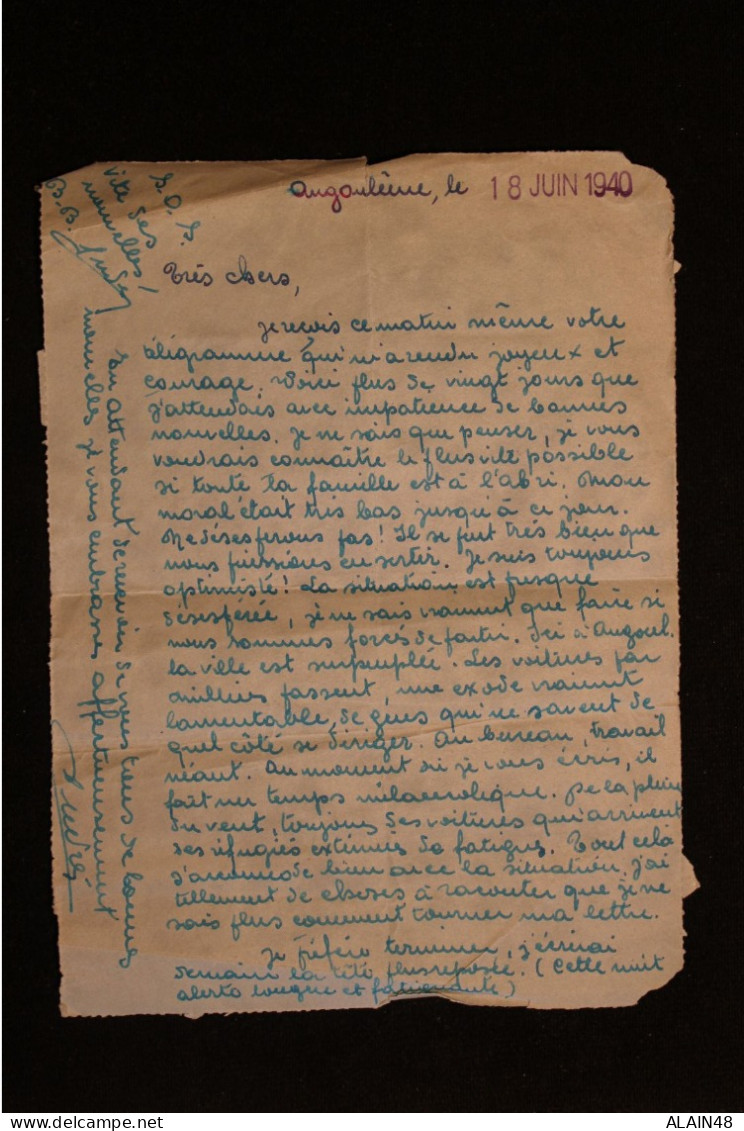 Angoulême, le 18 JUIN 1940
Très chers,
je reçois ce matin même votre
télégramme qui m'a rendu joyeux et
courage. Voici plus de vingt jours que
j'attendais avec impatience de bonnes
nouvelles. Je ne sais que penser, je vous
voudrais connaître le plus vite possible
si toute la famille est à l'abri. Mon
moral était très bas jusqu'à ce jour.
Ne désespérons pas! Il se peut très bien que
nous puissions en sortir. Je suis toujours
optimiste! La situation est presque
désespérée, je ne sais vraiment que faire si
nous sommes forcés de partir. Ici à Angoul.
la ville est surpeuplée. Les voitures par
milliers passent, une exode vraiment
lamentable, de gens qui ne savent de
quel côté se diriger. Au bureau, travail
néant. Au moment où je vous écris, il
fait un temps mélancolique. De la pluie
du vent, toujours des voitures qui arrivent
des réfugiés exténués de fatigue. Tout cela
s'accommode bien avec la situation. J'ai
tellement de choses à raconter que je ne
sais plus comment tourner ma lettre.
Je préfère terminer, j'écrirai
demain la tête plus reposée. (Cette nuit
alerte longue et fatigante)
En attendant de recevoir de vous tous de bonnes
nouvelles je vous embrasse affectueusement
André
S.O.S.
vite des
nouvelles!
B.B.
ALAIN48